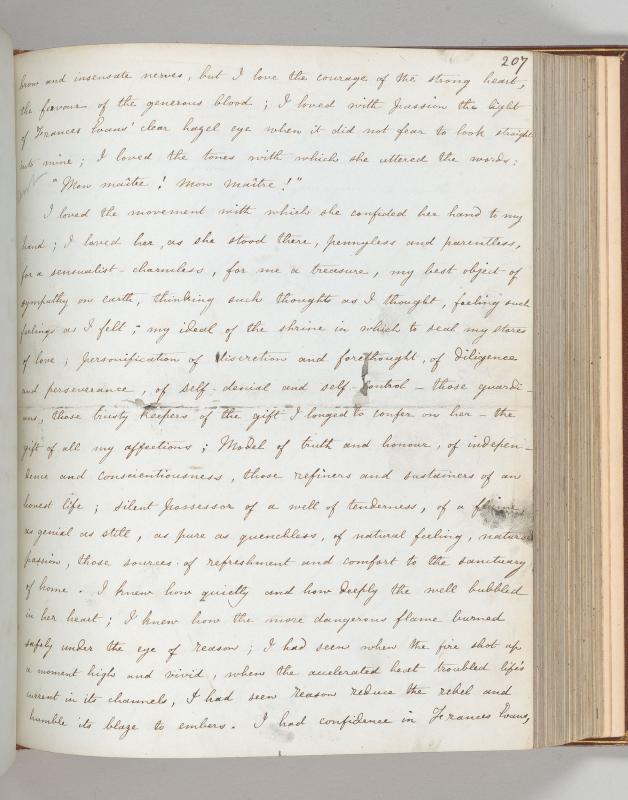 207
brow and insensate nerves, but I love the courage of the strong heart,
the fervour of the generous blood ; I loved with passion the light
of Frances Evans' clear hazel eye when it did not fear to look straight
into mine ; I loved the tones with which she uttered the words :
"Mon maître ! Mon maître !"
I loved the movement with which she confided her hand to my
hand ; I loved her, as she stood there, pennyless and parentless,
for a sensualist - charmless, for me a treasure, my best object of
sympathy on earth, thinking such thoughts as I thought, feeling such
feelings as I felt ; my ideal of the shrine in which to seal my stores
of love ; personification of discretion and forethought, of diligence
and perseverance, of self-denial and self-control - those guardi-
ans, those trusty keepers of the gift I longed to confer on her - the
gift of all my affections ; Model of truth and honour, of indepen-
dence and conscientiousness, those refiners and sustainers of an
honest life ; silent possessor of a well of tenderness, of a
as genial as still, as pure as quenchless, of natural feeling, natural
passion, those sources of refreshment and comfort to the sanctuary
of home. I knew how quietly and how deeply the well bubbled
in her heart ; I knew how the more dangerous flame burned
safely under the eye of reason ; I had seen when the fire shot up
a moment high and vivid, when the accelerated heat troubled life's
current in its channels, I had seen reason reduce the rebel and
humble its blaze to embers. I had confidence in Frances Evans,